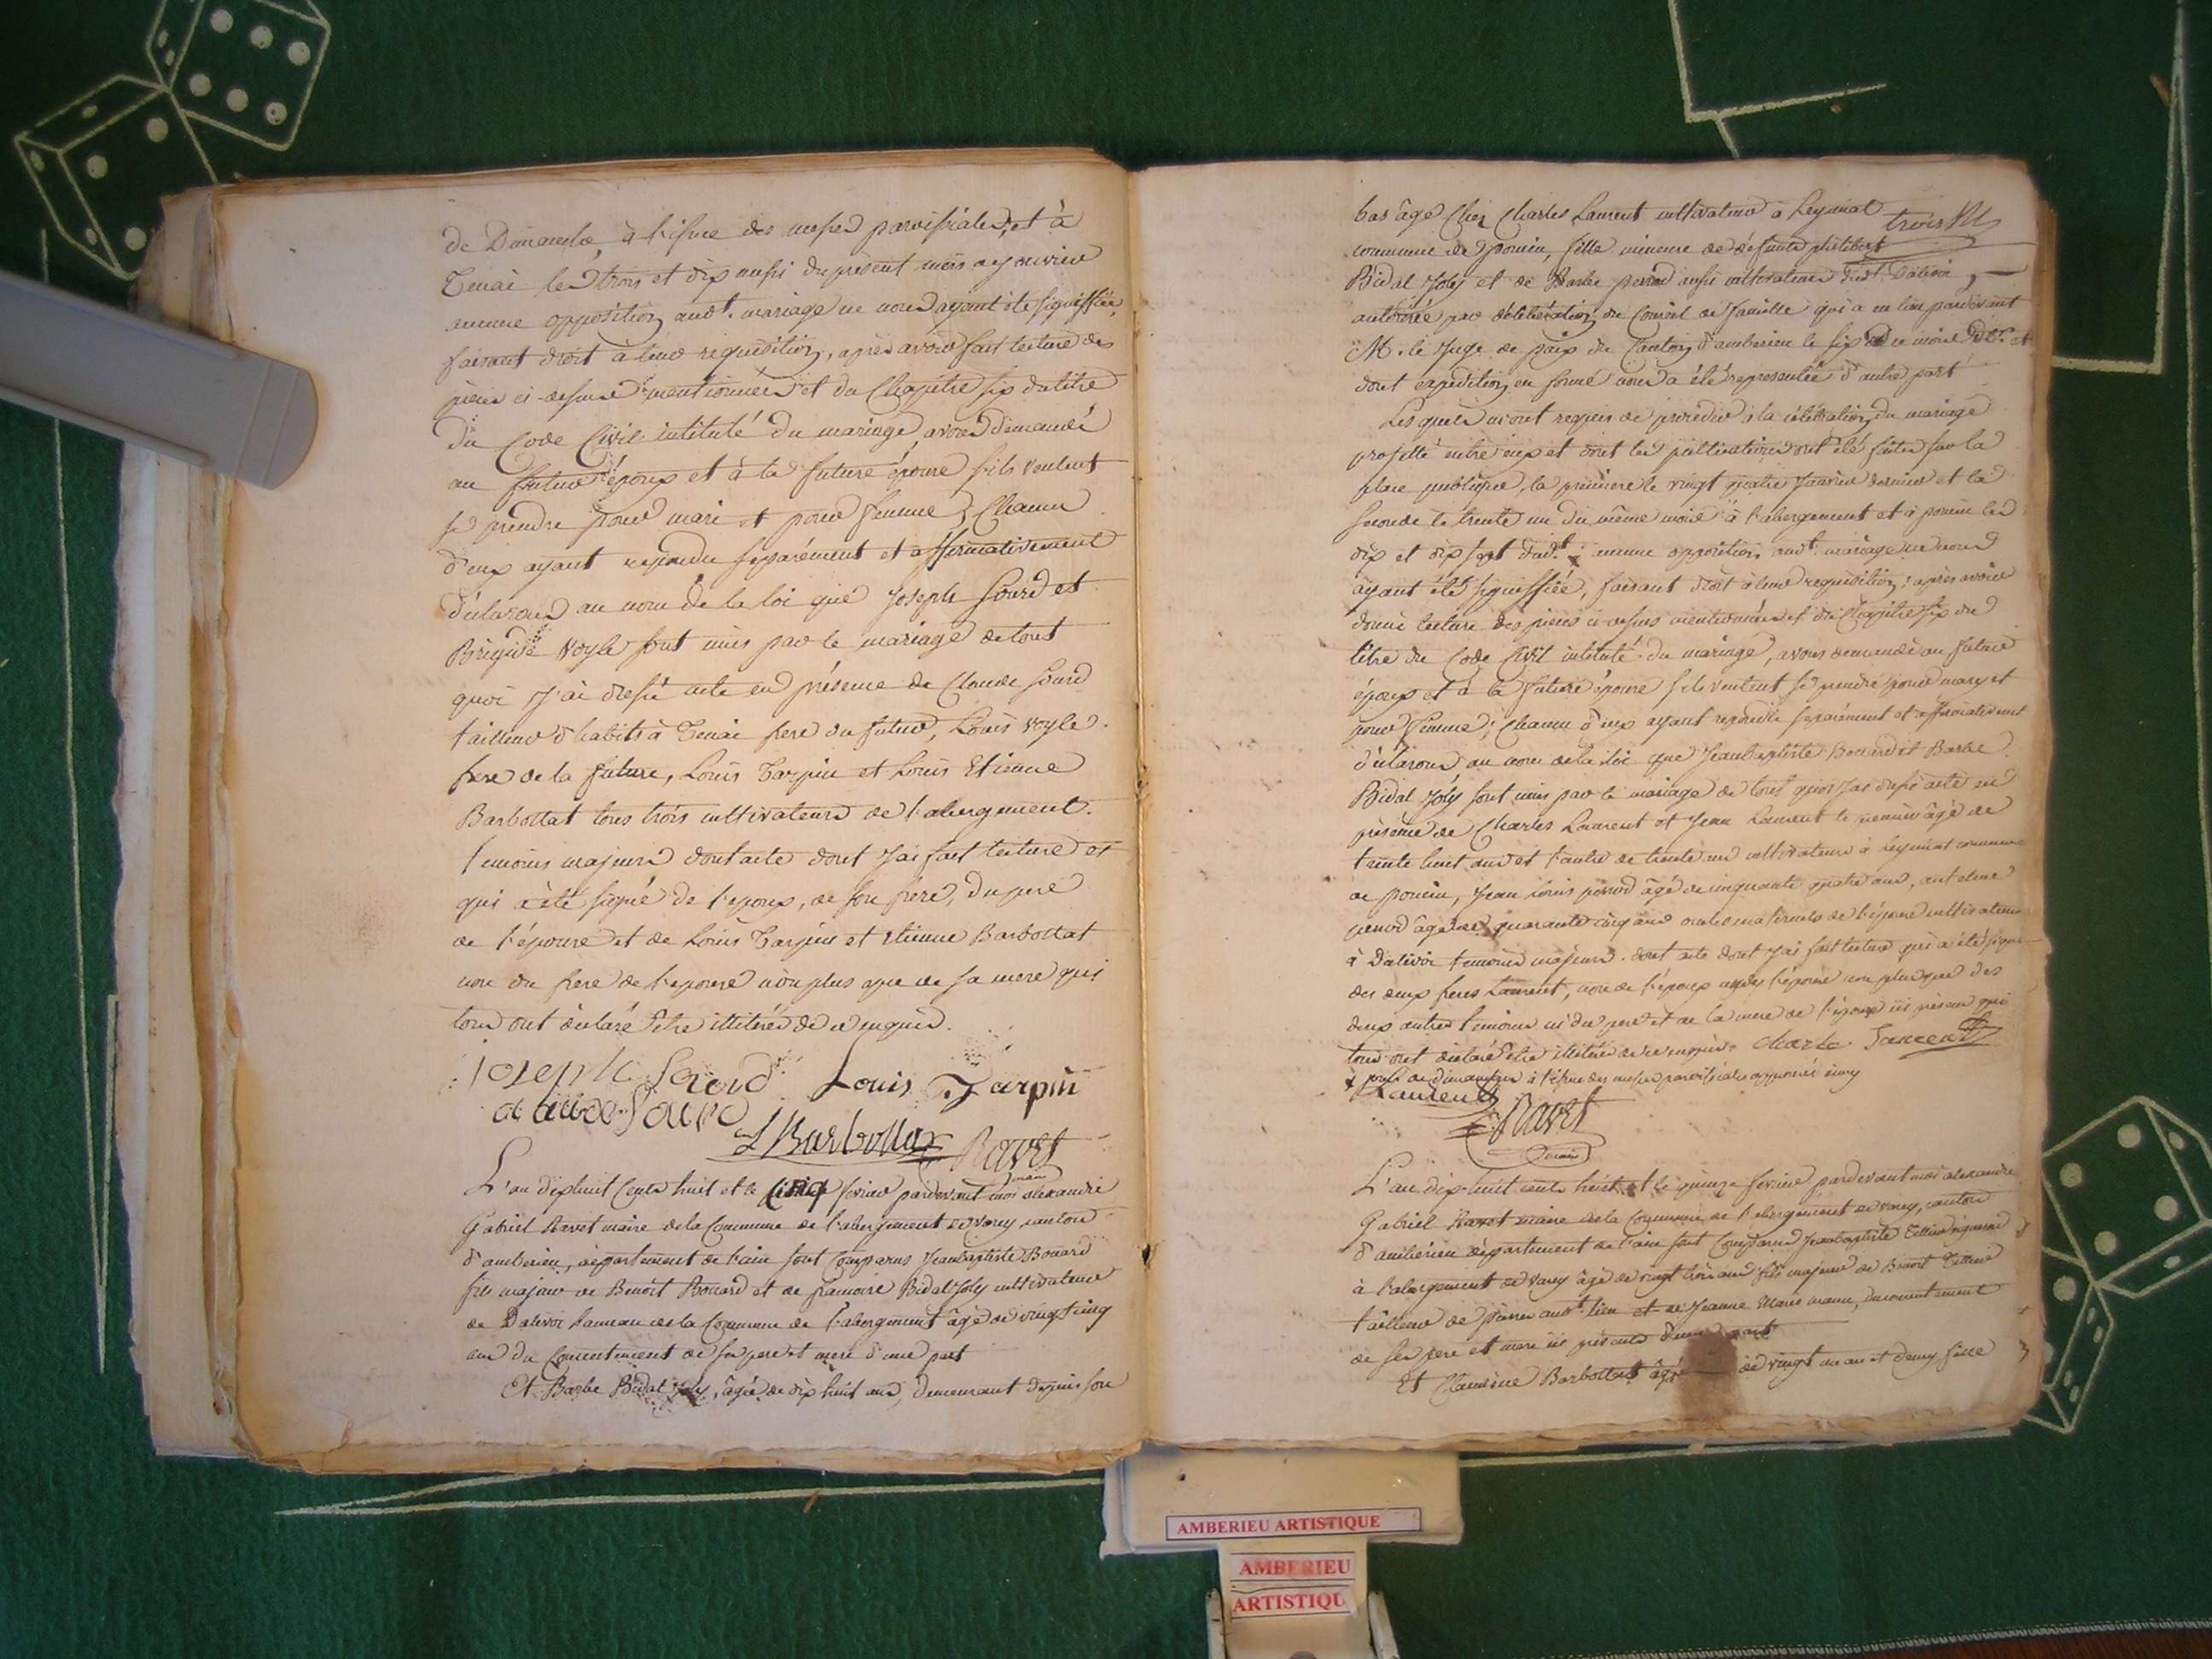 de Dimanche, à l'issue des messes paroissiales, et à
Tenai les trois et dix aussi du present mois de janvier
aucune opposition audt. mariage ne nous ayant été signiffiée,
faisant droit à leur requisition, après avoir fait lecture des
pièces ci-dessus mentionnées et du Chapitre six du titre
du Code Civil intitulé du mariage, avons demandé
au futur époux et à la future épouse s'ils veulent
se prendre pour mari et pour femme; Chacun
d'eux ayant repondu separément et affirmativement
déclarons au nom de la loi que Joseph Sourd et
Brigide Voyle sont unis par le mariage de tout
quoi J'ai dressé acte en présence de Claude Sourd
tailleur d'habits à Tenai frere du futur, Louis Voyle
frere de la future, Louis Tarpin et Louis Etienne
Barbottat tous trois cultivateurs de l'abergement.
temoins majeurs dont acte dont J'ai fait lecture et
qui a été signé de l'epoux, de son frere, du pere
de l'épouse et de Louis Tarpin et etienne Barbottat
non du frere de l'epouse non plus que de sa mere qui
tous ont déclaré être illitérés de ce enquis.
Joseph Sourd Louis Tarpin
claude Sourd
L Barbottat Ravet
maire
L'an dix huit Cents huit et le cinq fevrier pardevant moi alexandre
Gabriel Ravet maire de la Commune de l'abergement de varey canton
d'amberieu, département de l'ain sont Comparus Jeanbaptiste Bouard
fils majeur de Benoit Bouard et de francoise Bidal Joly cultivateur
de Dalivoi hameau de la Commune de l'abergement âgé de vingt cinq
ans du Consentement de ses pere et mere d'une part
Et Barbe Bidal Joly, âgée de dix huit ans, demeurant depuis son
bas âge Chez Charles Laurent cultivateur à Leymiat
trois
commune de poncin, fille mineure de défunts philibert
Bidal Joly et de Barbe perrod aussi cultivateurs dudt. Dalivoi,
autorisée par délibération du Conseil de famille qui a eu lieu pardevant
M. le Juge de paix du Canton d'amberieu le six de ce mois et
dont expedition en forme nous a été representée d'autre part
Lesquels m'ont requis de proceder à la célébration du mariage
projetté entre eux et dont les publications ont été faites sur la
place publique, la premiere le vingt quatre Janvier dernier et la
seconde le trente un du même mois à l'abergement et à poncin les
dix et dix sept dudt. x aucune opposition audt. mariage ne nous
ayant été signiffiée, faisant droit à leur requisition, après avoir
donné lecture des pièces ci-dessus mentionnées et du Chapitre six du
titre du Code Civil intitulé du mariage, avons demandé au futur
époux et à la future épouse s'ils veulent se prendre pour mary et
pour femme; Chacun d'eux ayant repondu separément et affirmativement
déclarons au nom de la loi que Jeanbaptiste Bouard et Barbe
Bidal Joly sont unis par le mariage de tout quoi J'ai dressé acte en
présence de Charles Laurent et Jean Laurent le premier âgé de
trente huit ans et l'autre de trente ans cultivateurs à Leymiat commune
de poncin, Jean Louis perrod âgé de cinquante quatre ans, anthelme
perrod âgé de quarante cinq ans oncles maternels de l'épouse cultivateurs
à Dalivoi temoins majeurs. dont acte dont J'ai fait lecture qui a été signé
des deux freres Laurent, non de l'époux de l'épouse non plus que des
deux autres temoins ni du pere et de la mere de l'époux ici présens qui
tous ont déclaré être illitérés de ce enquis. Charle Laurent
x jours de dimanches à l'issue des messes paroissiales
Laurent
Ravet
maire
L'an dix-huit cents huit et le quinze fevrier pardevant moi alexandre
Gabriel Ravet maire de la Commune de l'abergement de varey, canton
d'amberieu département de l'ain sont Comparus Jeanbaptiste
à l'abergement de varey âgé de vingt trois ans fils majeur de Benoit
tailleur de pierres audt. lieu et de Jeanne Marie du consentement
de ses pere et mere ici présents d'une part
Et Claudine Barbottat âgée de vingt un an et demy fille
AMBERIEU ARTISTIQUE
AMBERIEU
ARTISTIQU